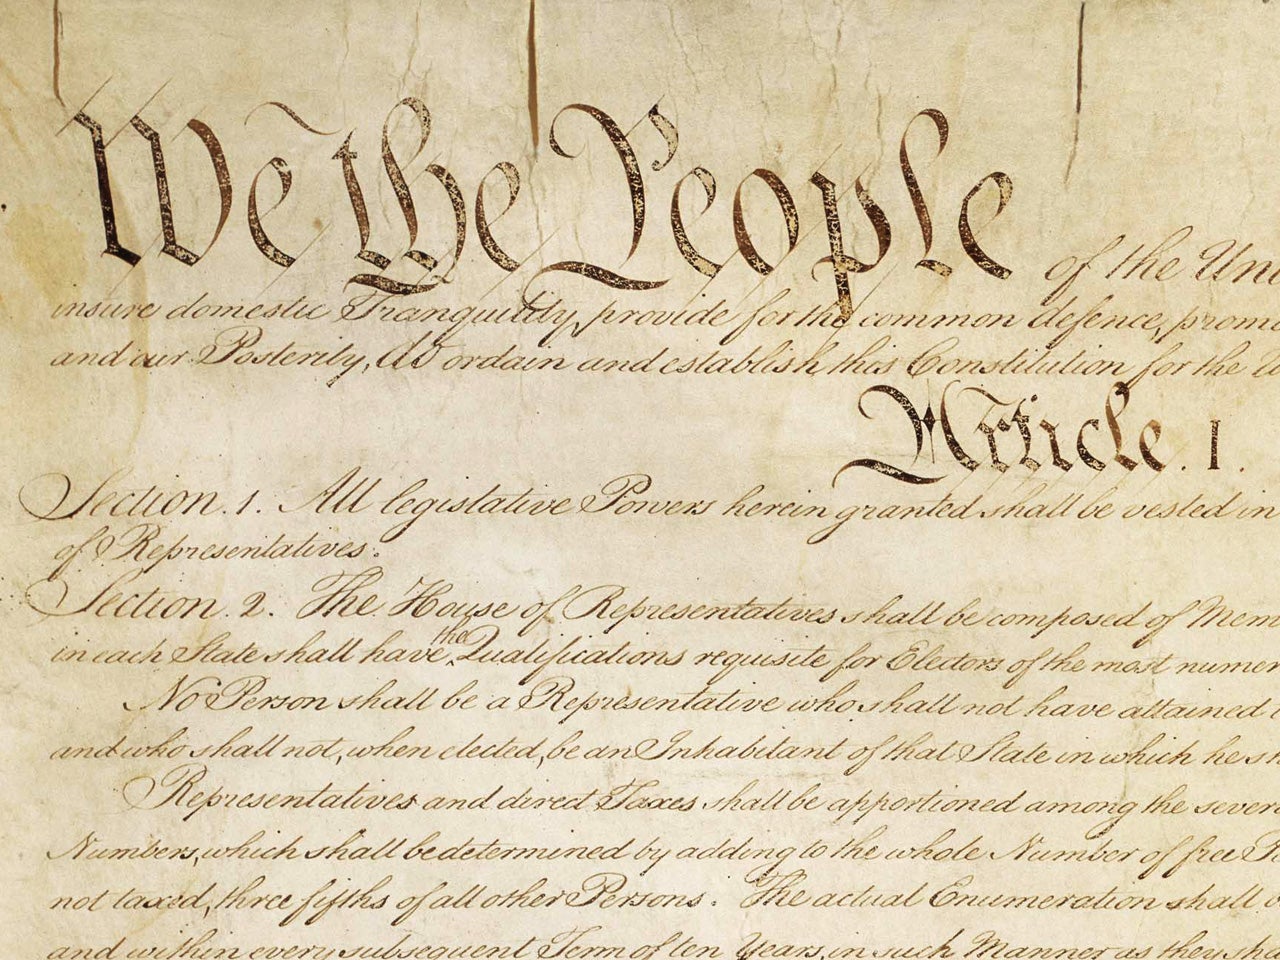 We the People of the Uni
insure domestic Tranquility, provide for the common defence, promo
and our Posterity, do ordain and establish this Constitution for the U
Article. I.
Section. 1. All legislative Powers herein granted shall be vested in
of Representatives.
Section. 2. The House of Representatives shall be composed of Mem
the
in each State shall have Qualifications requisite for Electors of the most numer
No Person shall be a Representative who shall not have attained
and who shall not, when elected, be an Inhabitant of that State in which he sh
Representatives and direct Taxes shall be apportioned among the sever
Numbers, which shall be determined by adding to the whole Number of free Pe
not taxed, three fifths of all other Persons. The actual Enumeration shall
and within every subsequent Term of ten Years, in such Manner as they sha